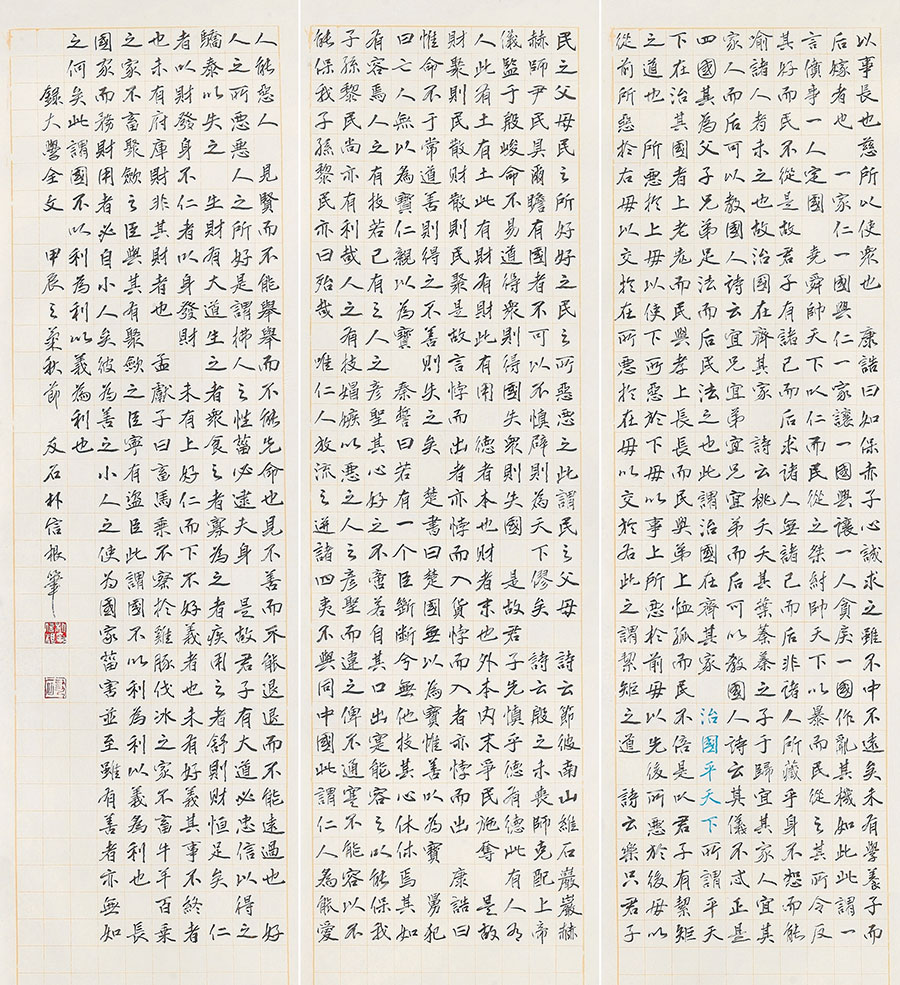 以事長也慈所以使衆也　康誥曰如保赤子心誠求之雖不中不遠矣未有學養子而
后嫁者也　一家仁一國興仁一家讓一國興讓一人貪戾一國作亂其機如此此謂一
言僨事一人定國　堯舜帥天下以仁而民從之桀紂帥天下以暴而民從之其所令反
其好而民不從是故君子有諸己而后求諸人無諸己而后非諸人所藏乎身不恕而能
喻諸人者未之也故治國在齊其家　詩云桃夭夭其葉蓁蓁之子于歸宜其家人宜其
家人而后可以教國人詩云宜兄宜弟宜兄宜弟而后可以教國人詩云其儀不忒正是
四國其為父子兄弟足法而后民法之也此謂治國在齊其家　治國平天下所謂平天
下在治其國者上老老而民興孝上長長而民興弟上恤孤而民不倍是以君子有絜矩
之道也　所惡於上毋以使下所惡於下毋以事上所惡於前毋以先後所惡於後毋以
從前所惡於右毋以交於在所惡於在毋以交於右此之謂絜矩之道　詩云樂只君子
民之父母民之所好好之民之所惡惡之此謂民之父母　詩云節彼南山維石巖巖赫
赫師尹民具爾瞻有國者不可以不慎辟則為天下僇矣　詩云殷之未喪師克配上帝
儀監于殷峻命不易道得衆則得國失衆則失國　是故君子先慎乎德有德此有人有
人此有土有土此有財有財此有用　德者本也財者末也外本內末爭民施奪　是故
財聚則民散財散則民聚是故言悖而出者亦悖而入貨悖而入者亦悖而出　康誥曰
惟命不于常道善則得之不善則失之矣　楚書曰楚國無以為寶惟善以為寶　舅犯
曰亡人無以為寶仁親以為寶　秦誓曰若有一个臣斷斷兮無他技其心休休焉其如
有容焉人之有技若己有之人之彥聖其心好之不啻若自其口出寔能容之以能保我
子孫黎民尚亦有利哉人之有技媢嫉以惡之人之彥聖而違之俾不通寔不能容以不
能保我子孫黎民亦曰殆哉　唯仁人放流之迸諸四夷不與同中國此謂仁人為能愛
人能惡人　見賢而不能舉舉而不能先命也見不善而不能退退而不能遠過也　好
人之所惡惡人之所好是謂拂人之性菑必逮夫身　是故君子有大道必忠信以得之
驕泰以失之　生財有大道生之者衆食之者寡為之者疾用之者舒則財恒足矣　仁
者以財發身不仁者以身發財　未有上好仁而下不好義者也未有好義其事不終者
也未有府庫財非其財者也　孟獻子曰畜馬乘不察於雞豚伐冰之家不畜牛羊百乘
之家不畜聚斂之臣與其有聚斂之臣寧有盜臣此謂國不以利為利以義為利也　長
國家而務財用者必自小人矣彼為善之小人之使為國家菑害並至雖有善者亦無如
之何矣此謂國不以利為利以義為利也
錄大學全文　甲辰之秋節　友石朴信根筆